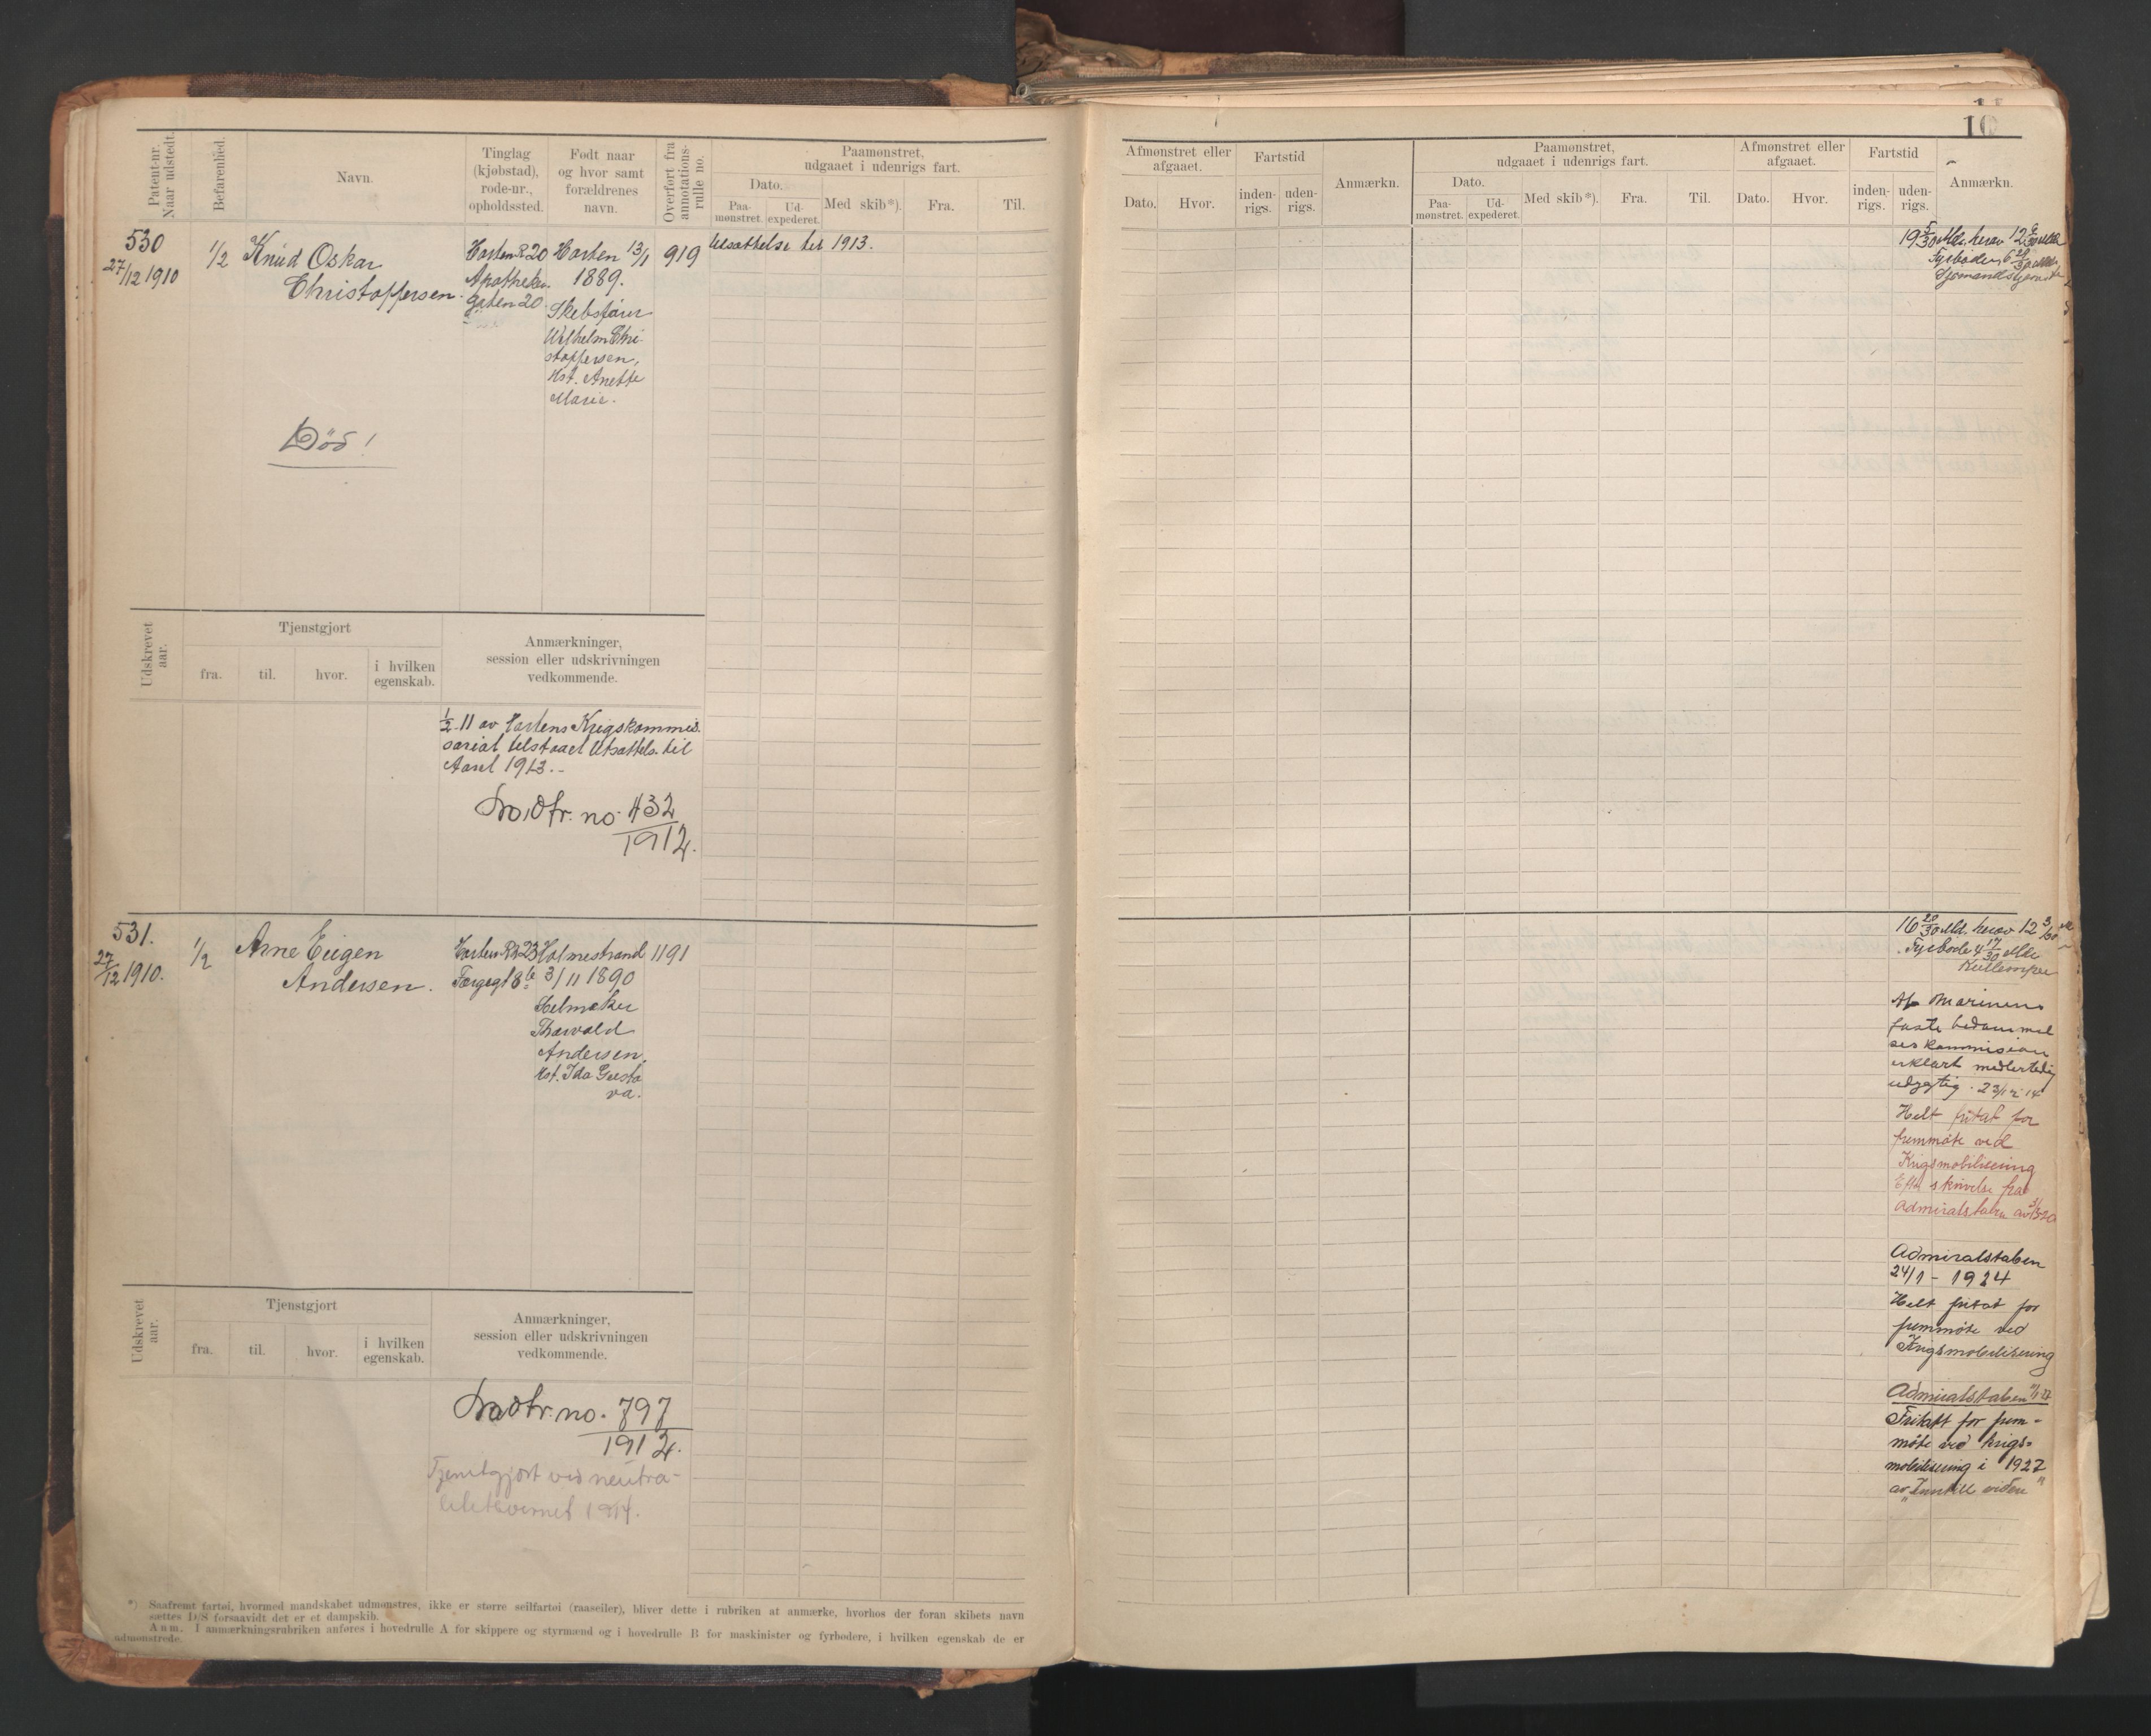 Patent-nr.
Naar udstedt.
Befarenhed.
Navn.
Tinglag
(kjøbstad),
rode-nr.,
opholdssted.
Født naar
og hvor samt
forældrenes
navn.
Overført fra
annotations-
rulle no.
Paamønstret,
udgaaet i udenrigs fart.
Dato.
Paa-
mønstret.
Ud-
expederet.
Med skib*).
Fra.
Til.
530
27/12 1910
1/2
Knud Oskar
Christoffersen.
Horten R 20
Apotheker
gaten 20.
Horten 13/1
1889.
Skibsfører
Wilhelm Chri-
stoffersen,
Hst. Anette
Marie.
919
Utsættelse til 1913.
Død!
Udskrevet
aar.
Tjenstgjort
fra.
til.
hvor.
i hvilken
egenskab.
Anmærkninger,
session eller udskrivningen
vedkommende.
1/2-11 av Hortens Krigskommis-
sariat tilstaaet Utsættels. til
Aaret 1913.-
no. 432
1912.
531.
27/12 1910.
1/2
Arne Eugen
Andersen.
Horten R 23
Færgegt 8
Holmestrand
3/11 1890
Thorvald
Andersen,
Hst. Ida Gusta
va.
1191
Udskrevet
aar.
Tjenstgjort
fra.
til.
hvor.
i hvilken
egenskab.
Anmærkninger,
session eller udskrivningen
vedkommende.
no. 797
1912.
Tjenstgjort ved neutra-
litetsvernet 1914.
*) Saafremt fartøi, hvormed mandskabet udmønstres, ikke er større seilfartøi (raaseiler), bliver dette i rubriken at anmærke, hvorhos der foran skibets navn
sættes D/S forsaavidt det er et dampskib.
Anm. I anmærkningsrubriken anføres i hovedrulle A for skippere og styrmænd og i hovedrulle B for maskinister og fyrbødere, i hvilken egenskab de er
udmønstrede.
10
Afmønstret eller
afgaaet.
Dato.
Hvor.
Fartstid
inden-
rigs.
uden-
rigs.
Anmærkn.
Paamønstret,
udgaaet i udenrigs fart.
Dato.
Paa-
mønstret.
Ud-
expederet.
Med skib*).
Fra.
Til.
Afmønstret eller
afgaaet.
Dato.
Hvor.
Fartstid
inden-
rigs.
uden-
rigs.
Anmærkn.
19 5/30 Md. herav 12
Fyrbøder, 6
16 20/30 Md. herav 12 3/30
Fyrbøde 4 17/30 Mdr
Kullemper
Af Marinens
faste bedømmel
seskommision
erklært midlertidig
udygtig. 23/12 14
Helt fritat for
fremmøte ved
Krigsmobilisering
Eftr skrivelse fra
Admiralstaben av 3/3 20
Admiralstaben
24/1 - 1924
Helt fritat for
fremmøte ved
Krigsmobilisering
Admiralstaben
Fritatt for frem-
møte ved krigs-
mobilisering i 1927
av "Inntill videre"